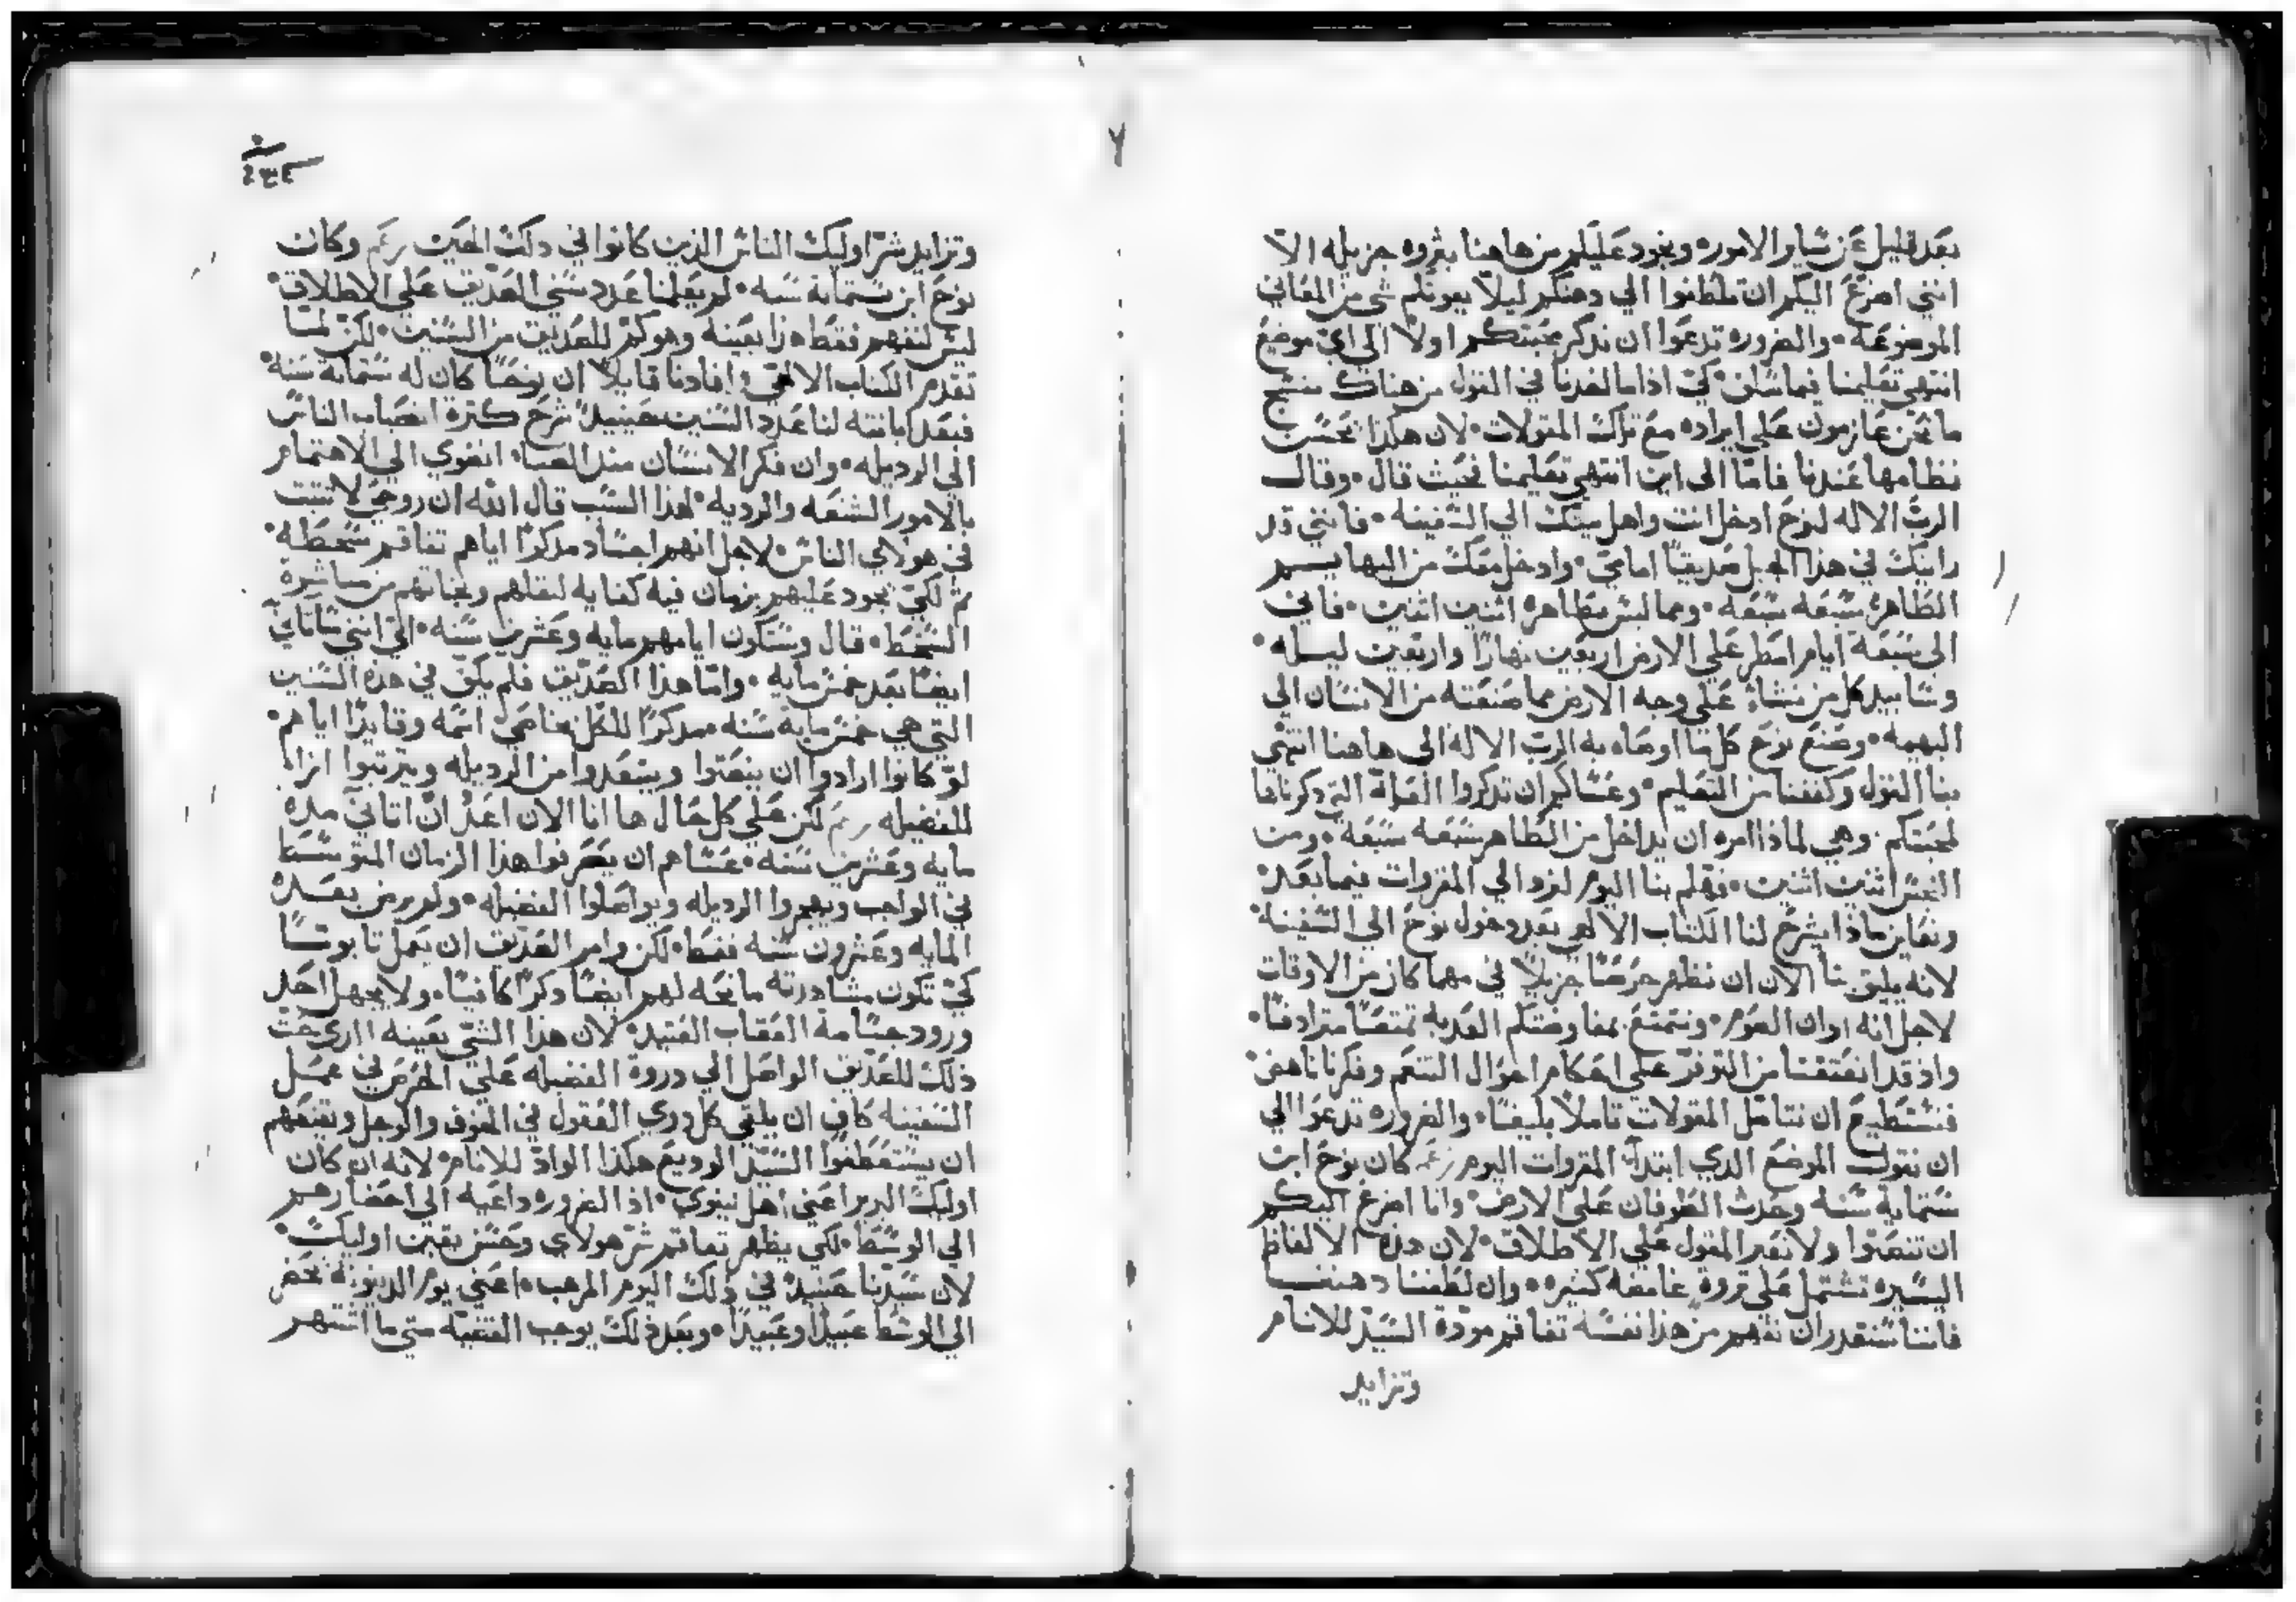 بعد قليل عن سَاير الامور، ونجود عليكم من هاهنا بثروه جزيله الا
انني اضرع اليكم ان تلطفوا الي دهنكم ليلا يفوتكم شى من المعاني
الموضوعه • والضروره تدعوا ان ندكر محبتكم اولا الى اي موضع
انتهي تعليمنا فيما سَلف• كي اذا ما اخدنا في القول من هناك ننسج
ما نحن عازمون علي ايراده مع تلك المقولات• لان هكذا يحسن
نظامها عندنا فامّا الى اين انتهي تعليمنا فحيث قال • وقال
الربّ الاله لنوح ادخل انت واهل بيتك الي السَفينه • فانني قد
رايتك في هذا الجيل صديقًا امامي • وادخل معك من البهايم
الطاهره سَبعه سَبعه • ومما ليس بطاهره اثنين اثنين • فاني
الى سَبعة ايام امطر علي الارض اربعين نهارًا واربعين ليله •
وسَابيد كل من نشاء علي وجه الارض مما صنعته من الانسان الي
البهيمه • وصنع نوح كل ما اوصاه به الربّ الاله الى هاهنا انتهى
بنا القول وكففنا من التعليم • وعسَاكم ان تدكروا العله التي دكرناها
لمحبتكم وهي لماذا امره ان يداخل من الطاهر سَبعه سَبعه • ومن
النجس اثنين اثنين • فهلم بنا اليوم لنرد الي المقروات فيما بعد•
ونعاين ماذا يشرح لنا الكتاب الالهي بعد دخول نوح الي السَفينه•
لانه يليق بنا الان ان نظهر حرصًا جزيلاً في مهما كان من الاوقات
لاجل انه اوان الصوم • ونتمتع بمفاوضتكم العديه تمتعًا مترادفًا•
واد قد انعتقنا من التوفر علي احكام احوال التنعم وفكرنا ناهض
فنستطيع ان نتامل المقولات تاملاً بليغًا • والضروره تدعوا الي
ان نقول الموضع الدي ابتداء المقروات اليوم زعم كان نوح ابن
سَتماية سَنه وحدث الطوفان على الارض• وانا اضرع اليكم
ان تنصتوا ولا نعبر المقول علي الاطلاق• لان هذه الالفاظ
اليسَيره تشتمل علي ثروة غامضه كثيره • وان لطفنا دهننا
فاننا سَنقدر ان نفهم من هذا نفسَه تفاقم مودة السَيّد للانام
وتزايد
٧
وتزايد شرّ اوليك الناس الذين كانوا في دلك الحين زعم وكان
نوح ابن سَتماية سَنه • لم يعلمنا عدد سَني الصديق علي الاطلاق•
ليس لنفهم فقط هذا بعينه وهو كم للصديق من السَنين • لكن لما
تقدم الكتاب الالهي وافادنا قايلاً ان نوحًا كان له سَتماية سَنه•
فبعد ابانته لنا عدد السَنين حينيدٍ شرح كثرة انصباب الناس
الي الرديله • وان فكر الانسَان مند الصبا• انغوي الي الاهتمام
بالامور الشنعه والرديه• لهذا السَبب قال الله ان روحي لا تتبت
في هولاي الناس • لاجل انهم اجسَاد مدكرًا اياهم تفاقم سَخطه•
ثم لكي يجود عليهم بزمان فيه كفايه لنقلهم ونجاتهم من مباشرة
السَخط • قال وسَتكون ايامهم مايه وعشرين سَنه • الي انني سَاتاني
ايضًا بعد خمس مايه • وامّا هذا الصدّيق فلم يكفّ في هذه السَنين
التي هي خمس مايه سَنه • مدكرًا للكل بمناصي اسَمه وقايدًا اياهم•
لو كانوا ارادوا ان ينصتوا ويبتعدوا من الرديله ويترتبوا ازا
للفضيله زعم لكن علي كل حال ها انا الان اعد ان اتاني مده
مايه وعشرين سَنه • عسَاهم ان يصرفوا هذا الزمان المتوسَط
في الواجب ويهجروا الرديله ويواصلوا الفضيله • ولم يرض بعده
المايه وعشرون سَنه فقط • لكن وامر الصدّيق ان يعمل تابوتًا
كي تكون مشاهدته مانحه لهم ايضًا دكرًا كافيًا • ولا يجهل احد
ورود جسَامة العقاب العتيد • لان هذا الشي بعينه
ذلك للصدّيق الواصل الي دروة الفضيله علي الحرص في عمل
السَفينه كافٍ ان يلقي كل دوي العقول في الخوف والوجل ويقنعهم
ان يستعطفوا السَيّد الوديع هكذا الوادّ للانام• لانه ان كان
اوليك البربر اعني اهل نينوي • اذ الضروره داعيه الي احضارهم
الي الوسَط • لكي يظهر تفاقم شرّ هولاي وحسن يقين اوليك•
لان سَيّدنا حينيدٍ في ذلك اليوم المرهب • اعني يوم الدينونه يحضر
الي الوسَط عبيدًا وعبيدًا • وبعد ذلك يوجب القضيه متي ما